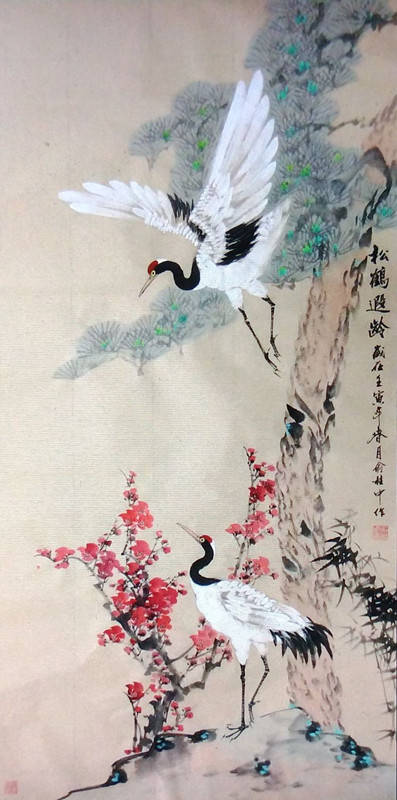 松鹤遐龄
歲在壬寅年春月俞桂中作